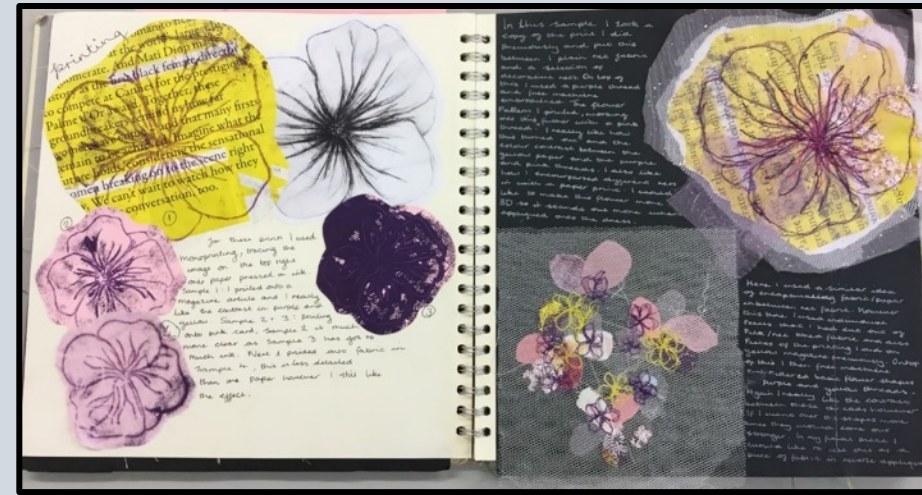 printing
manito rice
at the world-
omerate. And Mati Diop m
story as the first black female directo
o compete at Cannes for the prestigious
Palme d'Or
said. Together, these
groundbreakers remind us how far
and that many firsts
remain to be achieved. Imagine what the
uture holds, considering the sensational
omen breaking on to the scene right
. We can't wait to watch how they
conversation, too.
①
②
③
For these prints I used
monoprinting, tracing the
image on the top right
onto paper pressed on ink.
Sample 1: I printed onto a
magazine article and I really
like the contrast in purple and
yellow. Sample 2 + 3: Printing
onto pink card, Sample 2 is much
more clear as Sample 3 has got to
much ink. Next I printed onto fabric in
Sample 4, this is less detailed
than one paper however I still like
the effect.
In this sample I took a
copy of the print I did
previously and put this
between 1 plain net fabric
and a selection of
decorative nets. On top of
this I used a purple thread
and free machine
embroidered the flower
pattern I printed, working
into this further with a pink
thread. I really like how
this turned out and the
colour contrast between the
yellow paper and the purple
and pink threads. I also like
how I encompassed different nets
in with a paper print. I would
like to make this flower more
3D so it stands out more when
appliqued onto the dress.
Here I used a similar idea
of encapsulating fabric/paper
between net fabric. However
this time I used
pieces that I had cut out of
fabric and also
pieces of the printing I did on
yellow magazine paper. Ontop
of this I then free machine
stitched basic flower shapes
in purple and yellow threads.
Again I really like the contrast
between these threads however
if I went over the shapes more
times they would come out
stronger. In my final piece I
would like to use this as a
piece of fabric in reverse applique